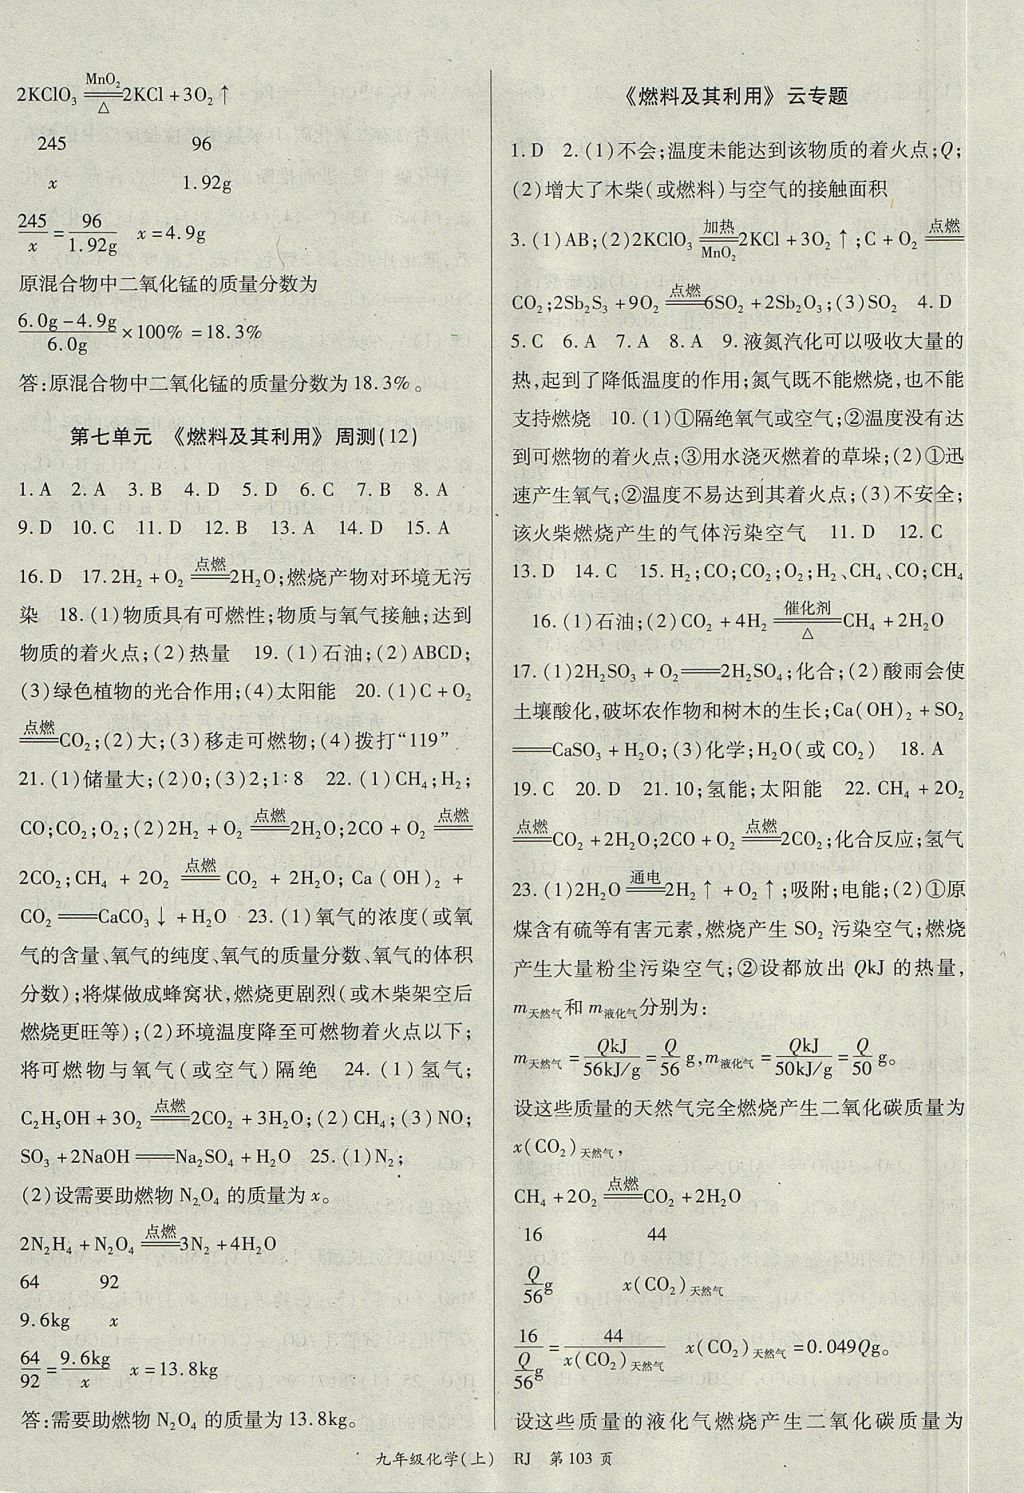 2KClO₃ =MnO₂/△= 2KCl+3O₂↑
245 96
x 1.92g
245/x=96/1.92g x=4.9g
原混合物中二氧化锰的质量分数为
(6.0g-4.9g)/6.0g×100%=18.3%
答:原混合物中二氧化锰的质量分数为18.3%。
第七单元 《燃料及其利用》周测(12)
1.A 2.A 3.B 4.D 5.D 6.C 7.B 8.A
9.D 10.C 11.D 12.B 13.A 14.D 15.A
16.D 17.2H₂+O₂ =点燃= 2H₂O;燃烧产物对环境无污
染 18.(1)物质具有可燃性;物质与氧气接触;达到
物质的着火点;(2)热量 19.(1)石油;(2)ABCD;
(3)绿色植物的光合作用;(4)太阳能 20.(1)C+O₂
=点燃= CO₂;(2)大;(3)移走可燃物;(4)拨打“119”
21.(1)储量大;(2)0;(3)2;1:8 22.(1)CH₄;H₂;
CO;CO₂;O₂;(2)2H₂+O₂ =点燃= 2H₂O;2CO+O₂ =点燃=
2CO₂;CH₄+2O₂ =点燃= CO₂+2H₂O;Ca(OH)₂+
CO₂══CaCO₃↓+H₂O 23.(1)氧气的浓度(或氧
气的含量、氧气的纯度、氧气的质量分数、氧气的体积
分数);将煤做成蜂窝状,燃烧更剧烈(或木柴架空后
燃烧更旺等);(2)环境温度降至可燃物着火点以下;
将可燃物与氧气(或空气)隔绝 24.(1)氢气;
C₂H₅OH+3O₂ =点燃= 2CO₂+3H₂O;(2)CH₄;(3)NO;
SO₃+2NaOH══Na₂SO₄+H₂O 25.(1)N₂;
(2)设需要助燃物N₂O₄的质量为x。
2N₂H₄+N₂O₄ =点燃= 3N₂+4H₂O
64 92
9.6kg x
64/92=9.6kg/x x=13.8kg
答:需要助燃物N₂O₄的质量为13.8kg。
《燃料及其利用》云专题
1.D 2.(1)不会;温度未能达到该物质的着火点;Q;
(2)增大了木柴(或燃料)与空气的接触面积
3.(1)AB;(2)2KClO₃ =加热/MnO₂= 2KCl+3O₂↑;C+O₂ =点燃=
CO₂;2Sb₂S₃+9O₂ =点燃= 6SO₂+2Sb₂O₃;(3)SO₂ 4.D
5.C 6.A 7.A 8.A 9.液氮汽化可以吸收大量的
热,起到了降低温度的作用;氮气既不能燃烧,也不能
支持燃烧 10.(1)①隔绝氧气或空气;②温度没有达
到可燃物的着火点;③用水浇灭燃着的草垛;(2)①迅
速产生氧气;②温度不易达到其着火点;(3)不安全;
该火柴燃烧产生的气体污染空气 11.D 12.C
13.D 14.C 15.H₂;CO;CO₂;O₂;H₂、CH₄、CO;CH₄
16.(1)石油;(2)CO₂+4H₂ =催化剂/△= CH₄+2H₂O
17.(1)2H₂SO₃+O₂══2H₂SO₄;化合;(2)酸雨会使
土壤酸化,破坏农作物和树木的生长;Ca(OH)₂+SO₂
══CaSO₃+H₂O;(3)化学;H₂O(或CO₂) 18.A
19.C 20.D 21.10;氢能;太阳能 22.CH₄+2O₂
=点燃= CO₂+2H₂O;2CO+O₂ =点燃= 2CO₂;化合反应;氢气
23.(1)2H₂O =通电= 2H₂↑+O₂↑;吸附;电能;(2)①原
煤含有硫等有害元素,燃烧产生SO₂污染空气;燃烧
产生大量粉尘污染空气;②设都放出QkJ的热量,
m天然气和m液化气分别为:
m天然气=QkJ/(56kJ/g)=Q/56 g,m液化气=QkJ/(50kJ/g)=Q/50 g。
设这些质量的天然气完全燃烧产生二氧化碳质量为
x(CO₂)天然气,
CH₄+2O₂ =点燃= CO₂+2H₂O
16 44
Q/56 g x(CO₂)天然气
16/(Q/56 g)=44/x(CO₂)天然气 x(CO₂)天然气=0.049Qg。
设这些质量的液化气燃烧产生二氧化碳质量为
九年级化学(上) RJ 第103页